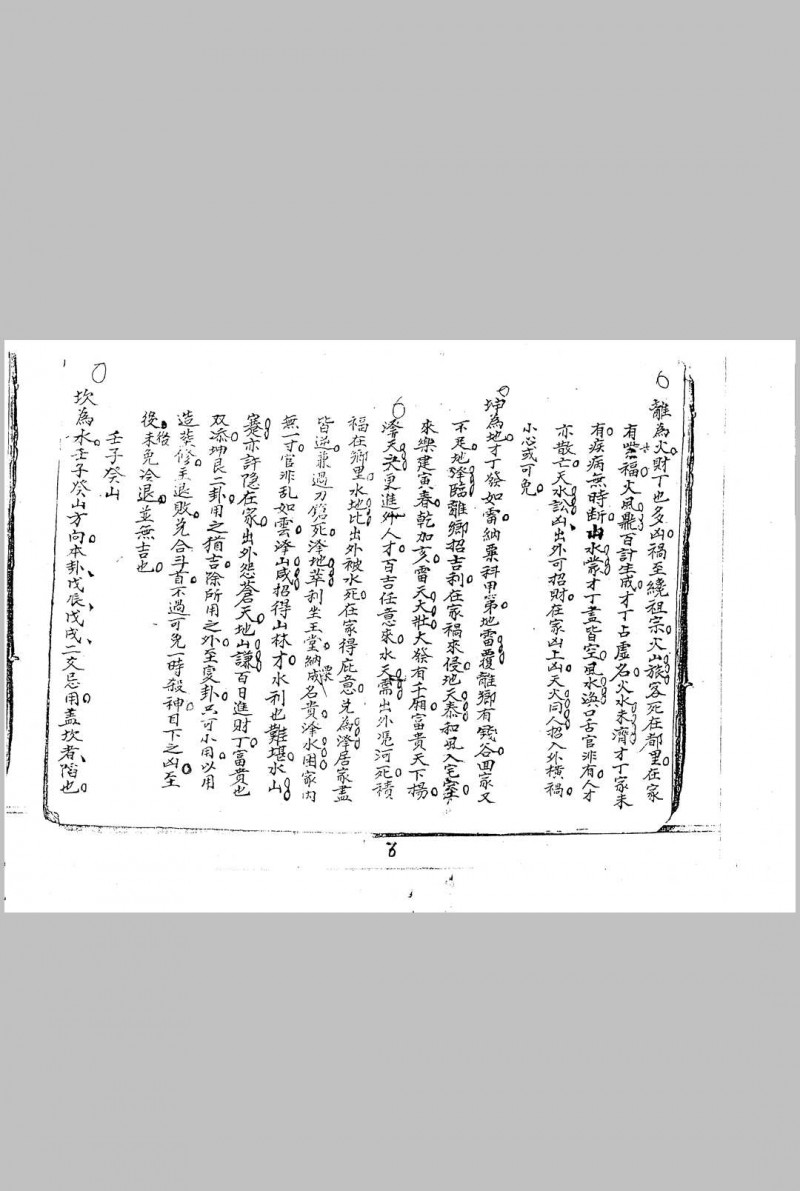 離為火財丁也多凶禍至繞祖宗火山旅客死在都里在家
有災福火風鼎百計生成才丁占虛名火水未濟才丁家未
有疾病無時斷山水蒙才丁盡皆空風水渙口舌官非有人才
亦散亡天水訟凶出外可招財在家凶上凶天火同人招入外橫禍
小心或可免
坤為地才丁發如雷納粟科甲第地雷覆離鄉有錢谷回家又
不足地澤臨離鄉招吉利在家禍來侵地天泰和風入宅
來樂建寅春乾加亥雷天大壯大發有千廂富貴天下揚
澤天夬更進外人才百吉任意來水天需出外溺河死積
福在鄉里水地比出外被水死在家得庇意兌為澤居家盡
皆逆兼過刀鎗死澤地萃利坐玉堂納咸名貴澤水困家內
無一寸官非乱如雲澤山咸招得山林才水利也難堪水山
蹇亦許隐在家出外怨蒼天地山謙百日進財丁富貴也
双添坤艮二卦用之猶吉除所用之外至変卦只可小用以用
造葬修主退敗兌合斗首不過可免一時殺神目下之凶至
後未免冷退並無吉也
壬子癸山
坎為水壬子癸山方向本卦戊辰戊戌二爻忌用盖坎者陷也
8